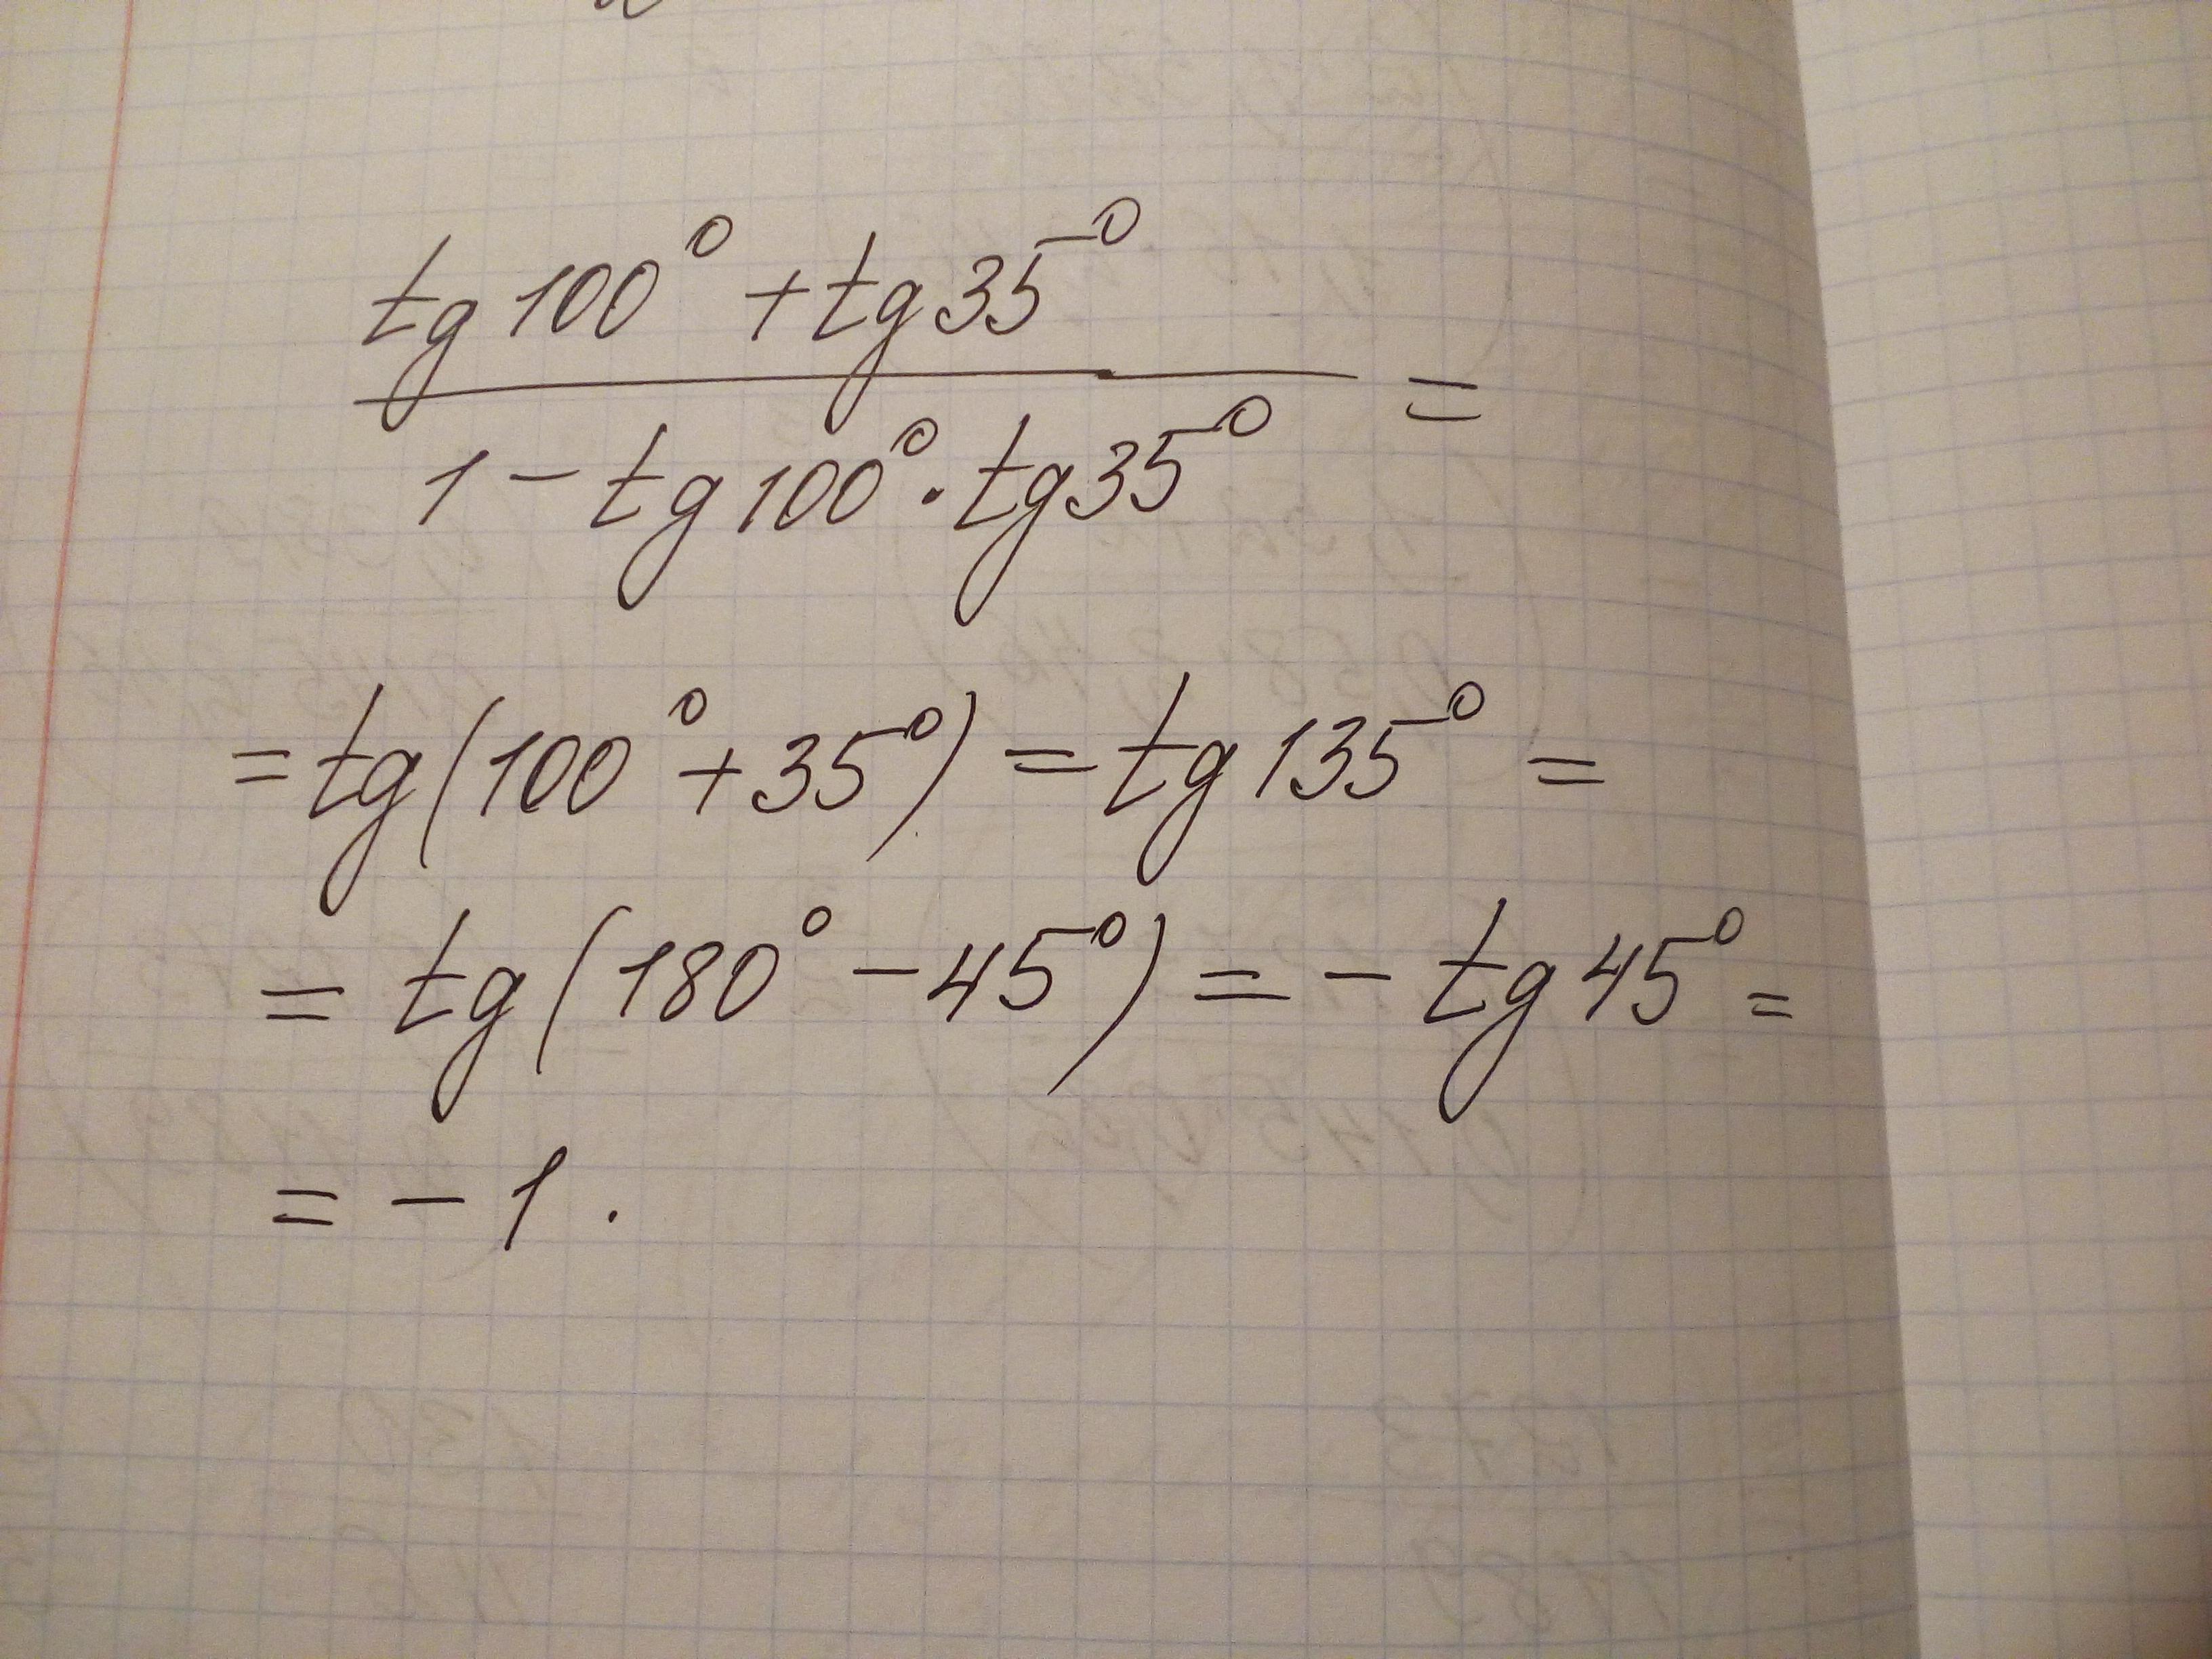 tg 100° + tg 35°
1 − tg 100° · tg 35° =
= tg (100° + 35°) = tg 135° =
= tg (180° − 45°) = − tg 45° =
= − 1 .